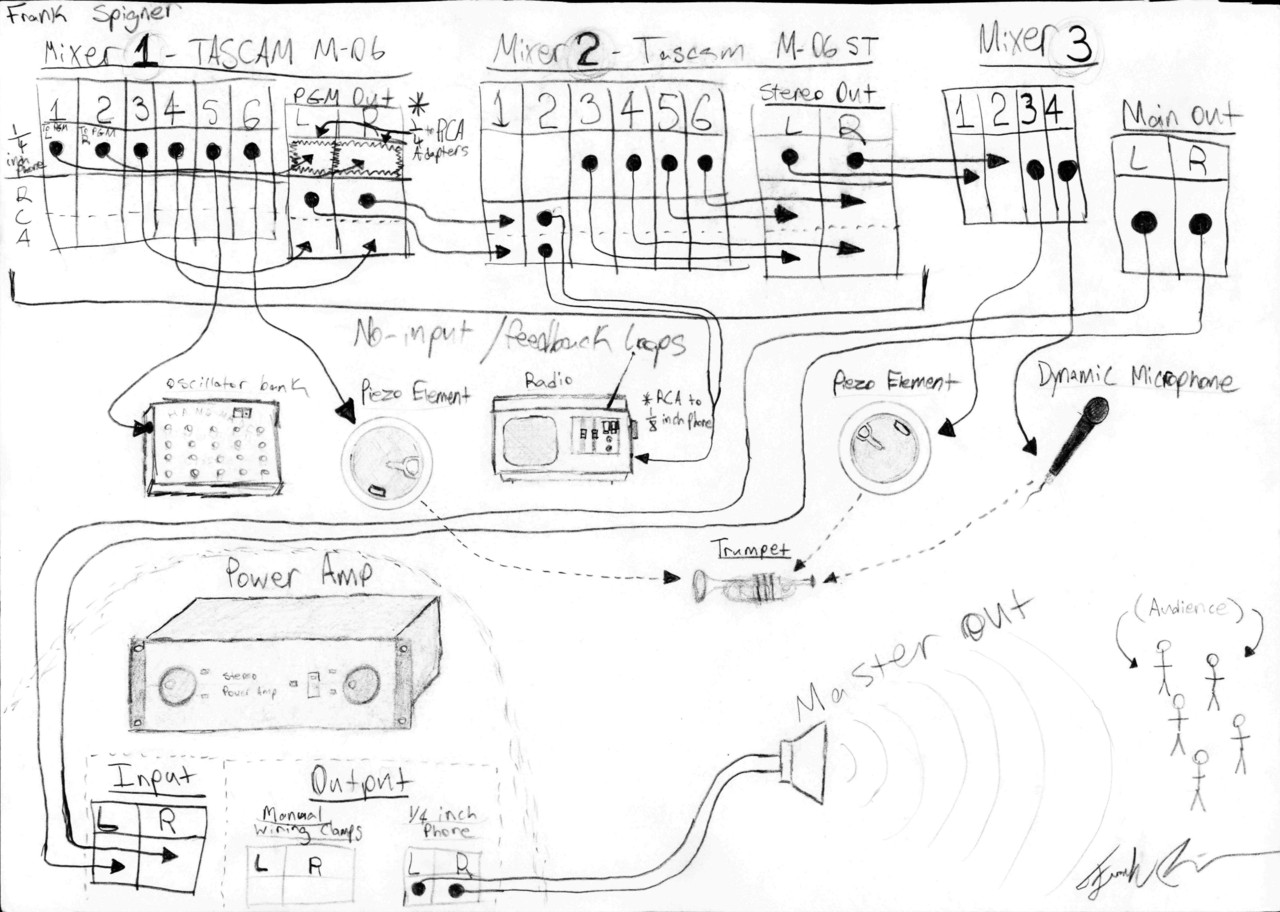 Frank Spigner
Mixer 1 - TASCAM M-06
Mixer 2 - Tascam M-06 ST
Mixer 3
1 2 3 4 5 6
PGM Out
L R
* 1/4 to RCA Adapters
1 2 3 4 5 6
Stereo Out
L R
1 2 3 4
Main Out
L R
1/4 inch Phone
To PGM L
To PGM R
RCA
No-input / feedback Loops
Oscillator bank
Piezo Element
Radio
* RCA to 1/8 inch phone
Piezo Element
Dynamic Microphone
Trumpet
Power Amp
Stereo
Power Amp
Master Out
(Audience)
Input
L R
Output
Manual
Wiring Clamps
L R
1/4 inch
Phone
L R
Frank